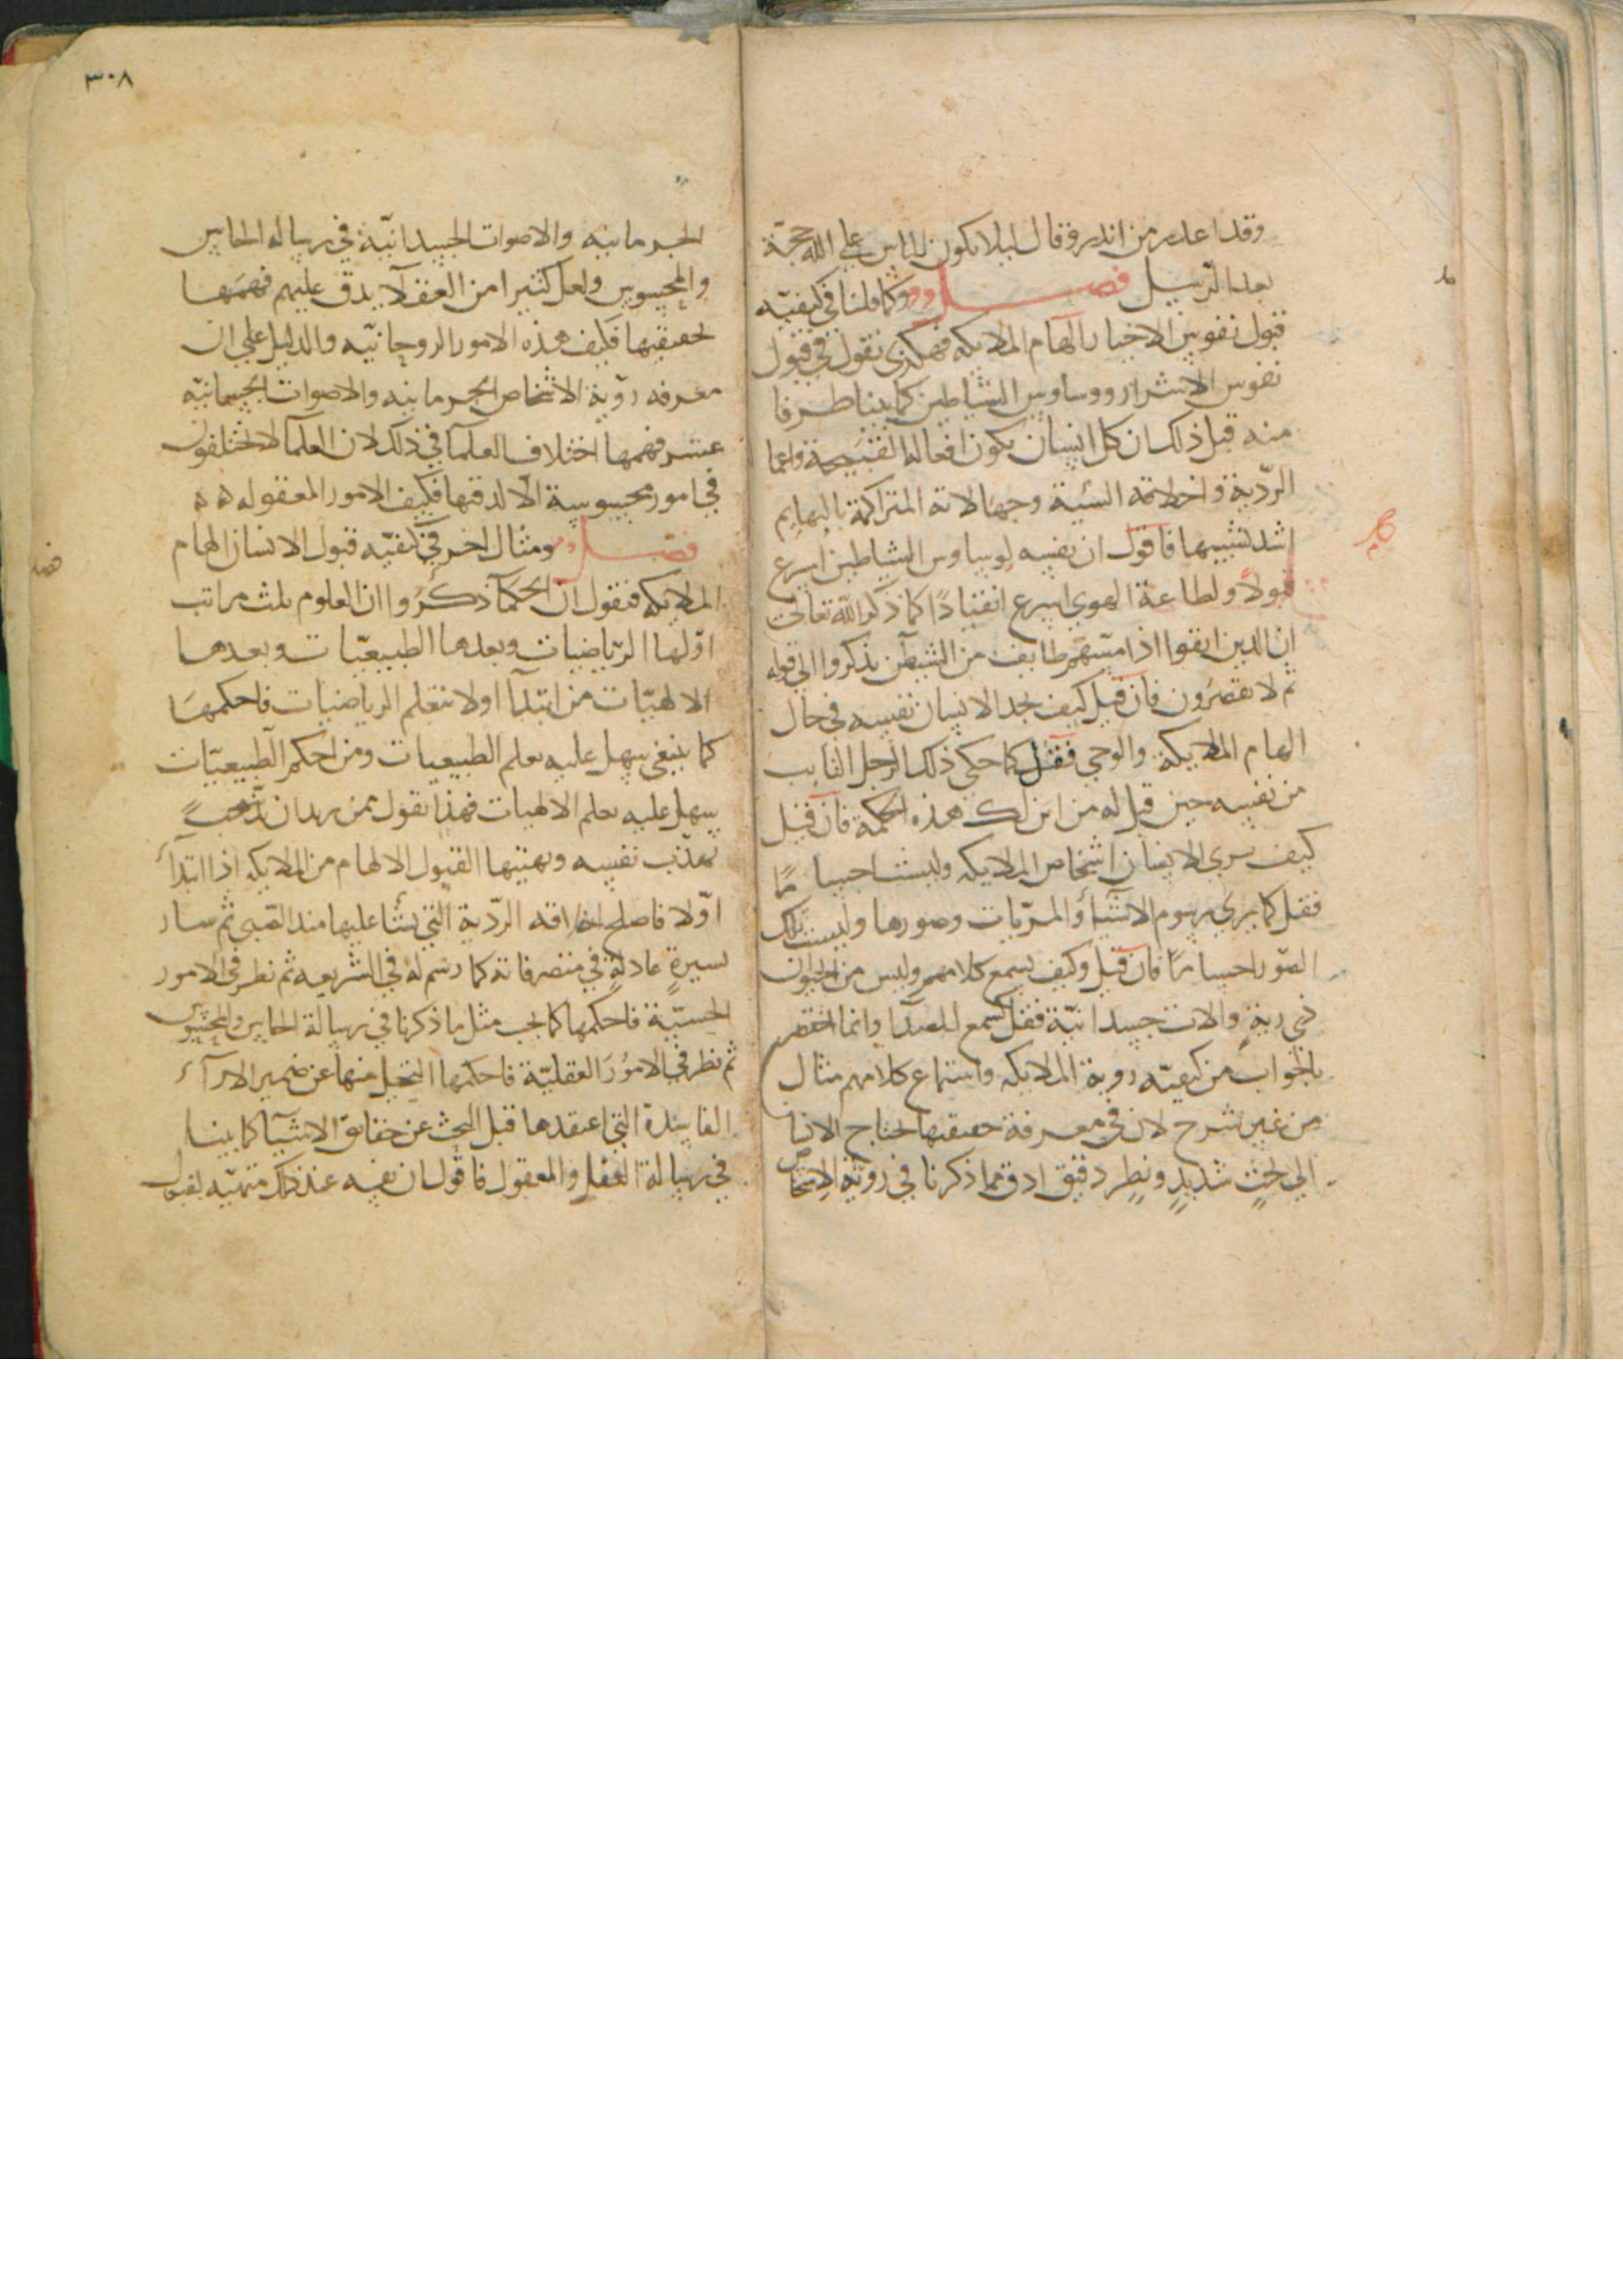 وقد اعذر من انذر وقال ليلا يكون للناس علي الله حجة
بعد الرسل فصل وكما قلنا في كيفيّه
قبول نفوس الاخيار الهام الملايكه فهكذى نقول في قبول
نفوس الاشرار ووساوس الشياطين كما بينا طرفا
منه قبل ذلك ان كل انسان يكون افعاله القبيحة واعما
الرديّة واخلاقه السيّة وجهالاته المتراكمة بالبهايم
اشد تشبيها فاقول ان نفسه لوساوس الشياطين اسرع
قبولا ولطاعة الهوي اسرع انقيادًا كما ذكر الله تعالى
ان الذين اتقوا اذا مسّهم طايف من الشيطن تذكروا الي قوله
ثم لا يقصرون فان قيل كيف يجد الانسان نفسه في حال
الهام الملايكة والوحي فقل كما حكى ذلك الرجل التايب
من نفسه حين قيل له من اين لك هذه الحكمة فان قيل
كيف يري الانسان اشخاص الملايكه وليست اجساما
فقل كما يري رسوم الاشيا والمريات وصورها وليست تلك
الصّور اجساما فان قيل وكيف يسمع كلامهم وليس من الحيوان
ذي رية والات جسدانيّة فقل كسمع للصدا وانما اختصر
بالجواب من كيفيّه روية الملايكه واستماع كلامهم مثال
من غير شرح لان في معرفة حقيقتها يحتاج الانسا
الي بحث شديد ونظر دقيق ادق مما ذكرنا في رويّة الاشخاص
٣٠٨
الجرمانيه والاصوات الجسدانيّة في رساله الحاس
والمحسوس ولعل كثيرا من العقلا يدق عليهم فهمها
بحقيقتها فكيف هذه الامور الروحانيّه والدليل علي ان
معرفه روية الاشخاص الجرمانيه والاصوات الجسمانيّه
عسر فهمها اختلاف العلما في ذلك لان العلما لا يختلفون
في امور محسوسة الا لدقتها فكيف الامور المعقوله ه ه
فصل ومثال اخر في كيفيّه قبول الانسان الهام
الملايكه فنقول ان الحكما ذكروا ان العلوم ثلث مراتب
اوّلها الرياضيات وبعدها الطبيعيّات وبعدها
الالهيّات من ابتدا اولا بتعلم الرياضيات فاحكمها
كما ينبغي سهل عليه تعلم الطبيعيات ومن احكم الطبيعيّات
سهل عليه تعلم الالهيات فهذا نقول بمن يريد ان
تهذّب نفسه وتهنيها القبول الالهام من الملايكه اذا ابتدا
اوّلا فاصلح اخلاقه الرديّة التي نشا عليها منذ الصّبى ثم سار
بسيرة عادلة في متصرفاته كما رسم له في الشريعه ثم نظر في الامور
الحسيّة فاحكمها كما يجب مثل ما ذكرنا في رسالة الحاس والمحسوس
ثم نظر في الامور العقليّة فاحكمها النحل منها عن ضمير الارآء
الفاسدة التي اعتقدها قبل البحث عن حقايق الاشيا كما بينا
في رسالة العقل والمعقول فاقول ان نفسه عند ذلك متهيّه لقبول